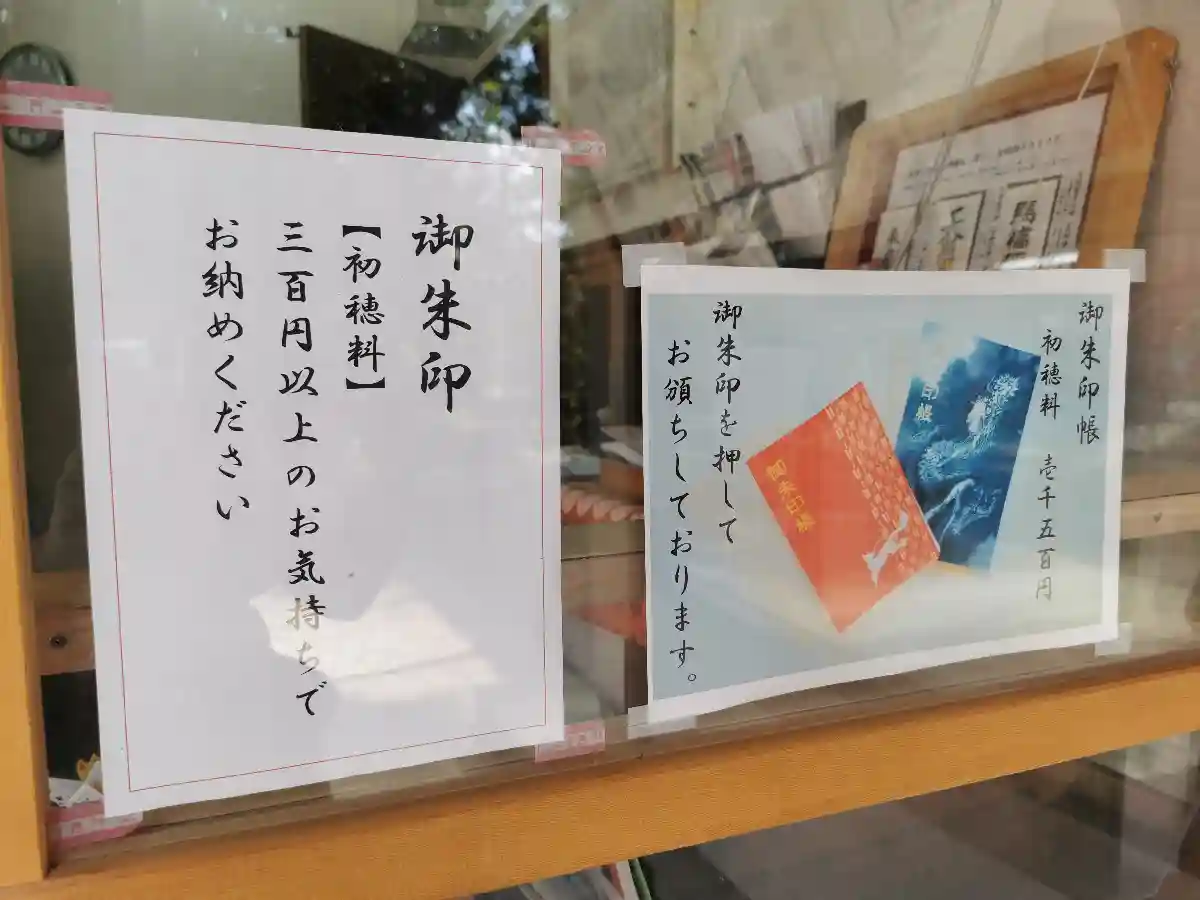 御朱印
【初穂料】
三百円以上のお気持ちで
お納めください
御朱印帳
初穂料 壱千五百円
御朱印を押して
お頒ちしております。
御朱印帳
印帳